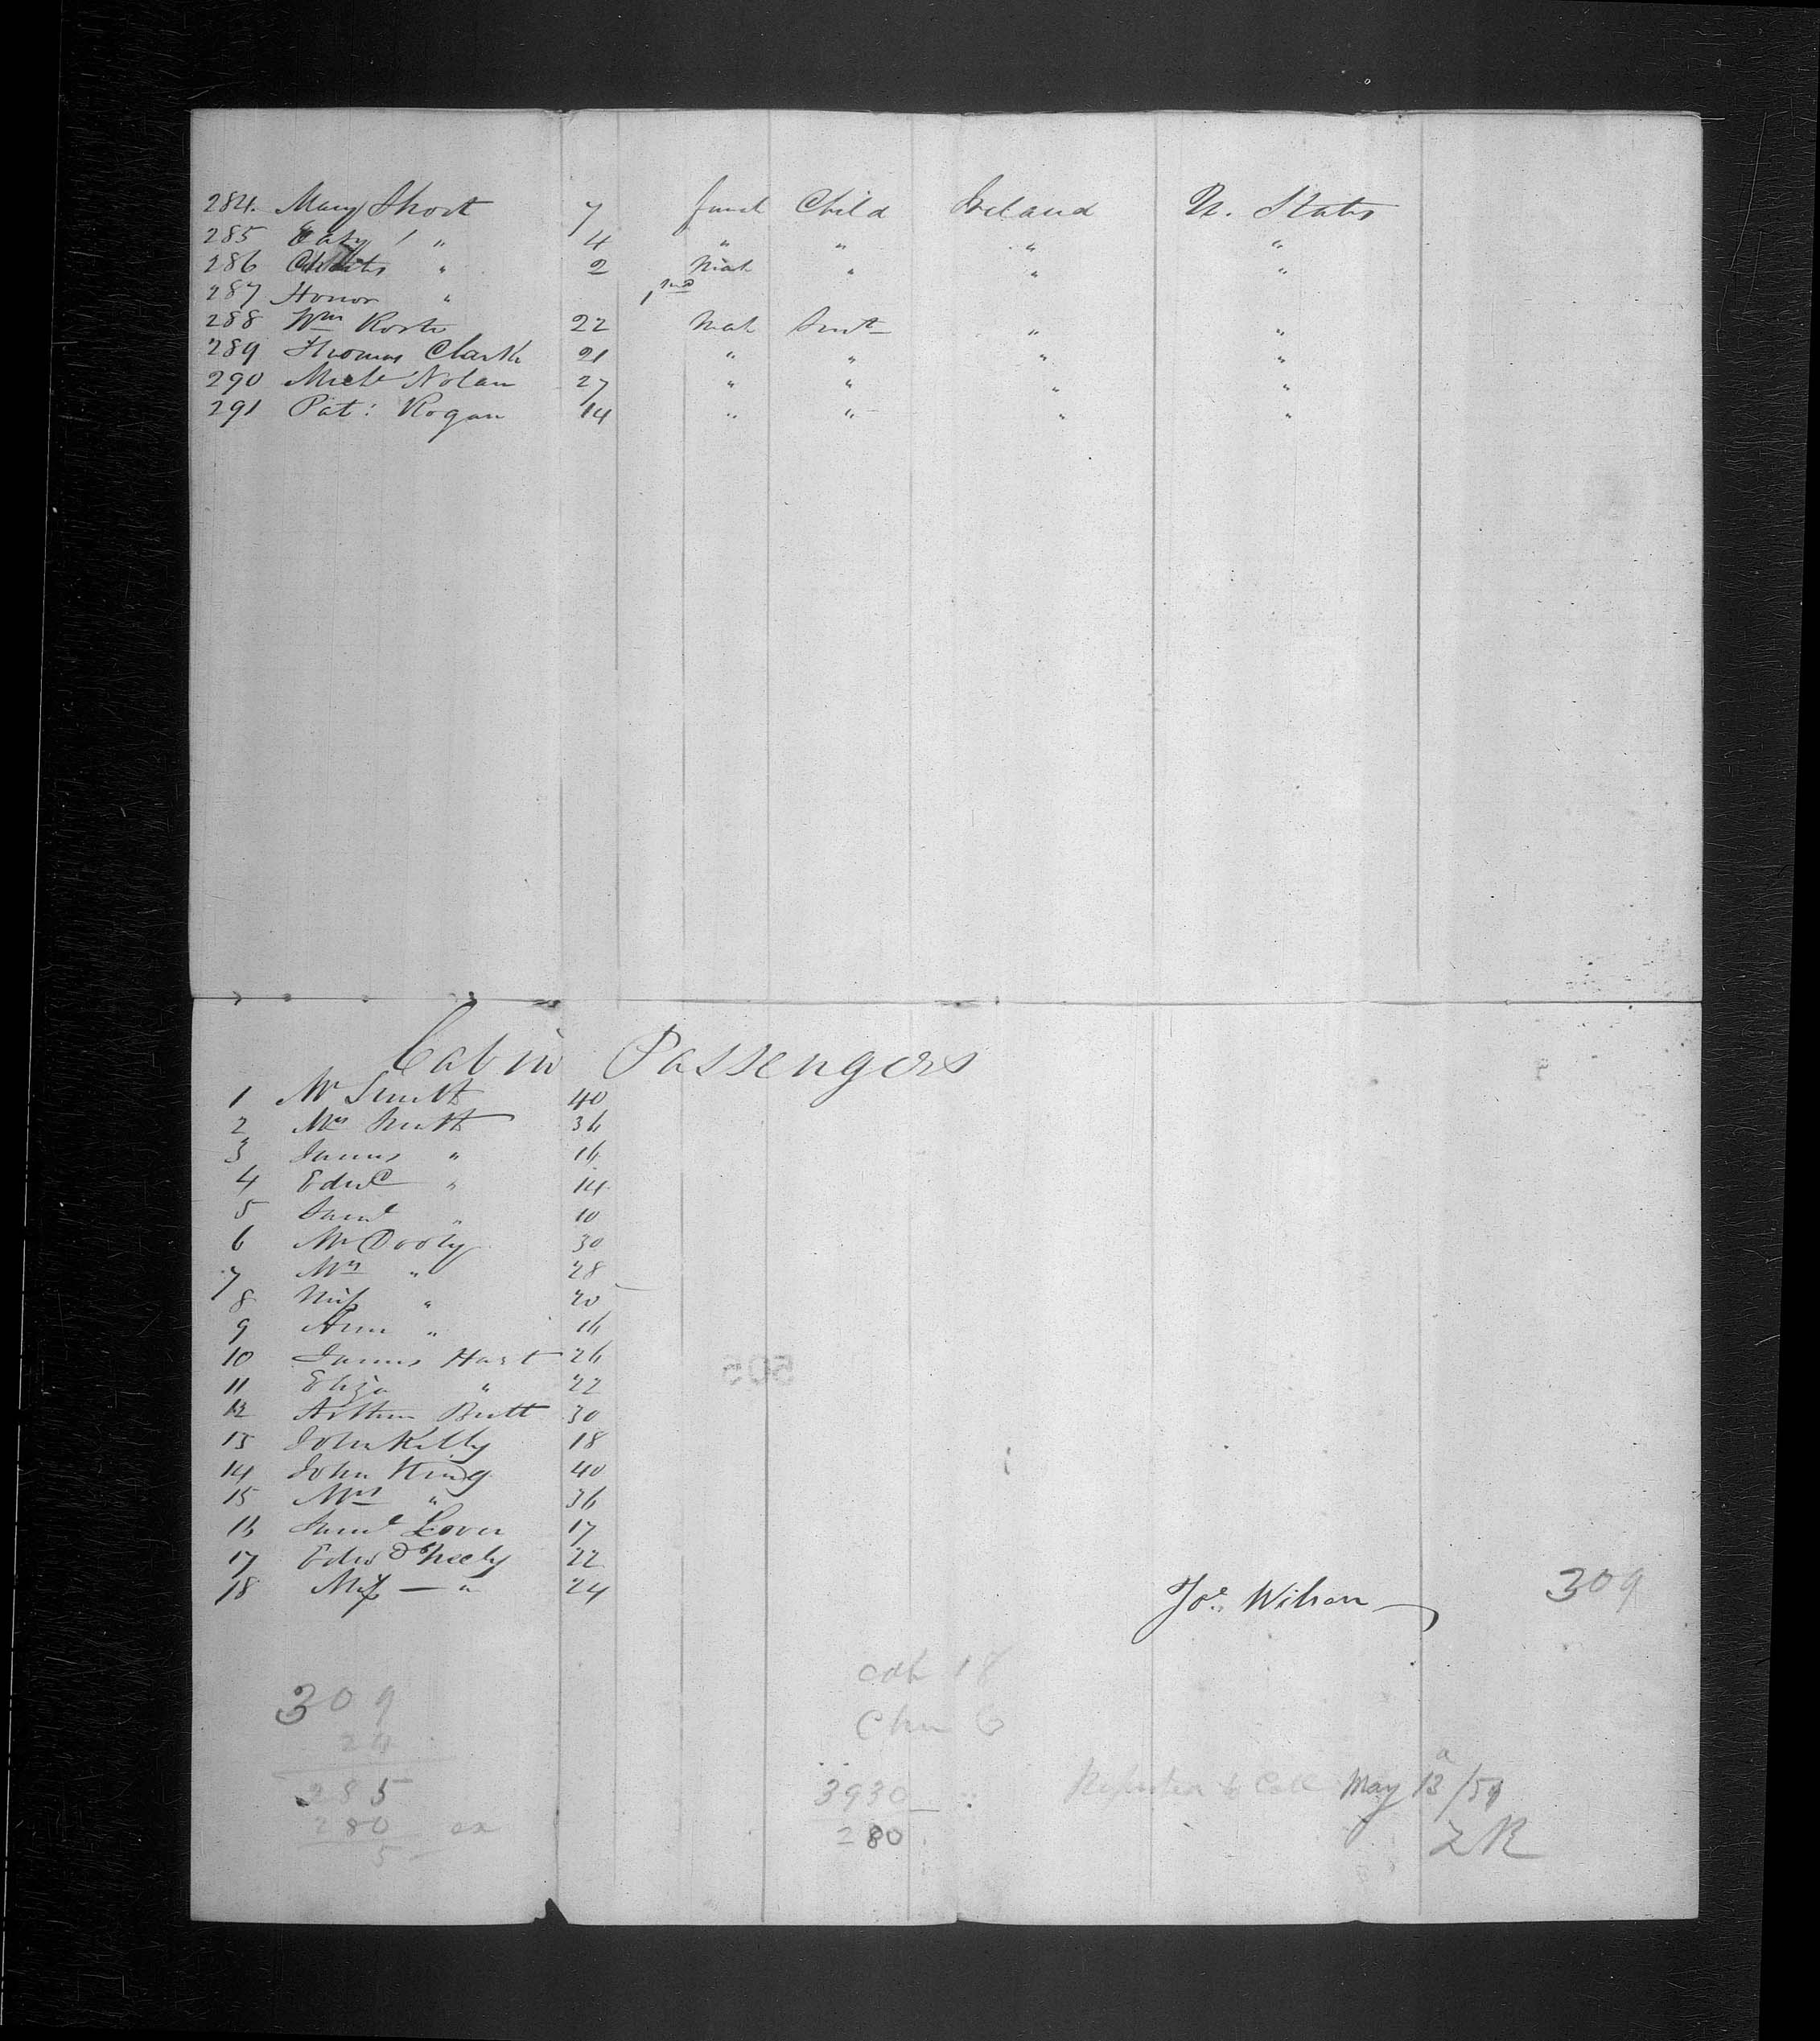 284. Mary Short 7 femel Child Ireland U. States
285 Caty " 4 " " " "
286 Charls " 2 Male " " "
287 Honor " 1 mo
288 Wm Rork 22 Male Servt " "
289 Thomas Clark 21 " " " "
290 Michl Nolan 27 " " " "
291 Pat: Rogan 14 " " " "
Cabin Passengers
1 Mr Smith 40
2 Mrs Smith 36
3 James " 16
4 Edwd " 14
5 Saml " 10
6 Mr Dooly 30
7 Mrs " 28
8 Miss " 20
9 Ann " 16
10 James Hart 26
11 Eliza " 22
12 Arthur Butt 30
13 John Kelly 18
14 John King 40
15 Mrs " 36
16 Saml Lover 17
17 Edwd Sheely 22
18 Miss — " 24
Jos. Wilson 309
cab 18
309 Chn 6
24
285 3930 May 13/51
280 ex 280 ZR
5